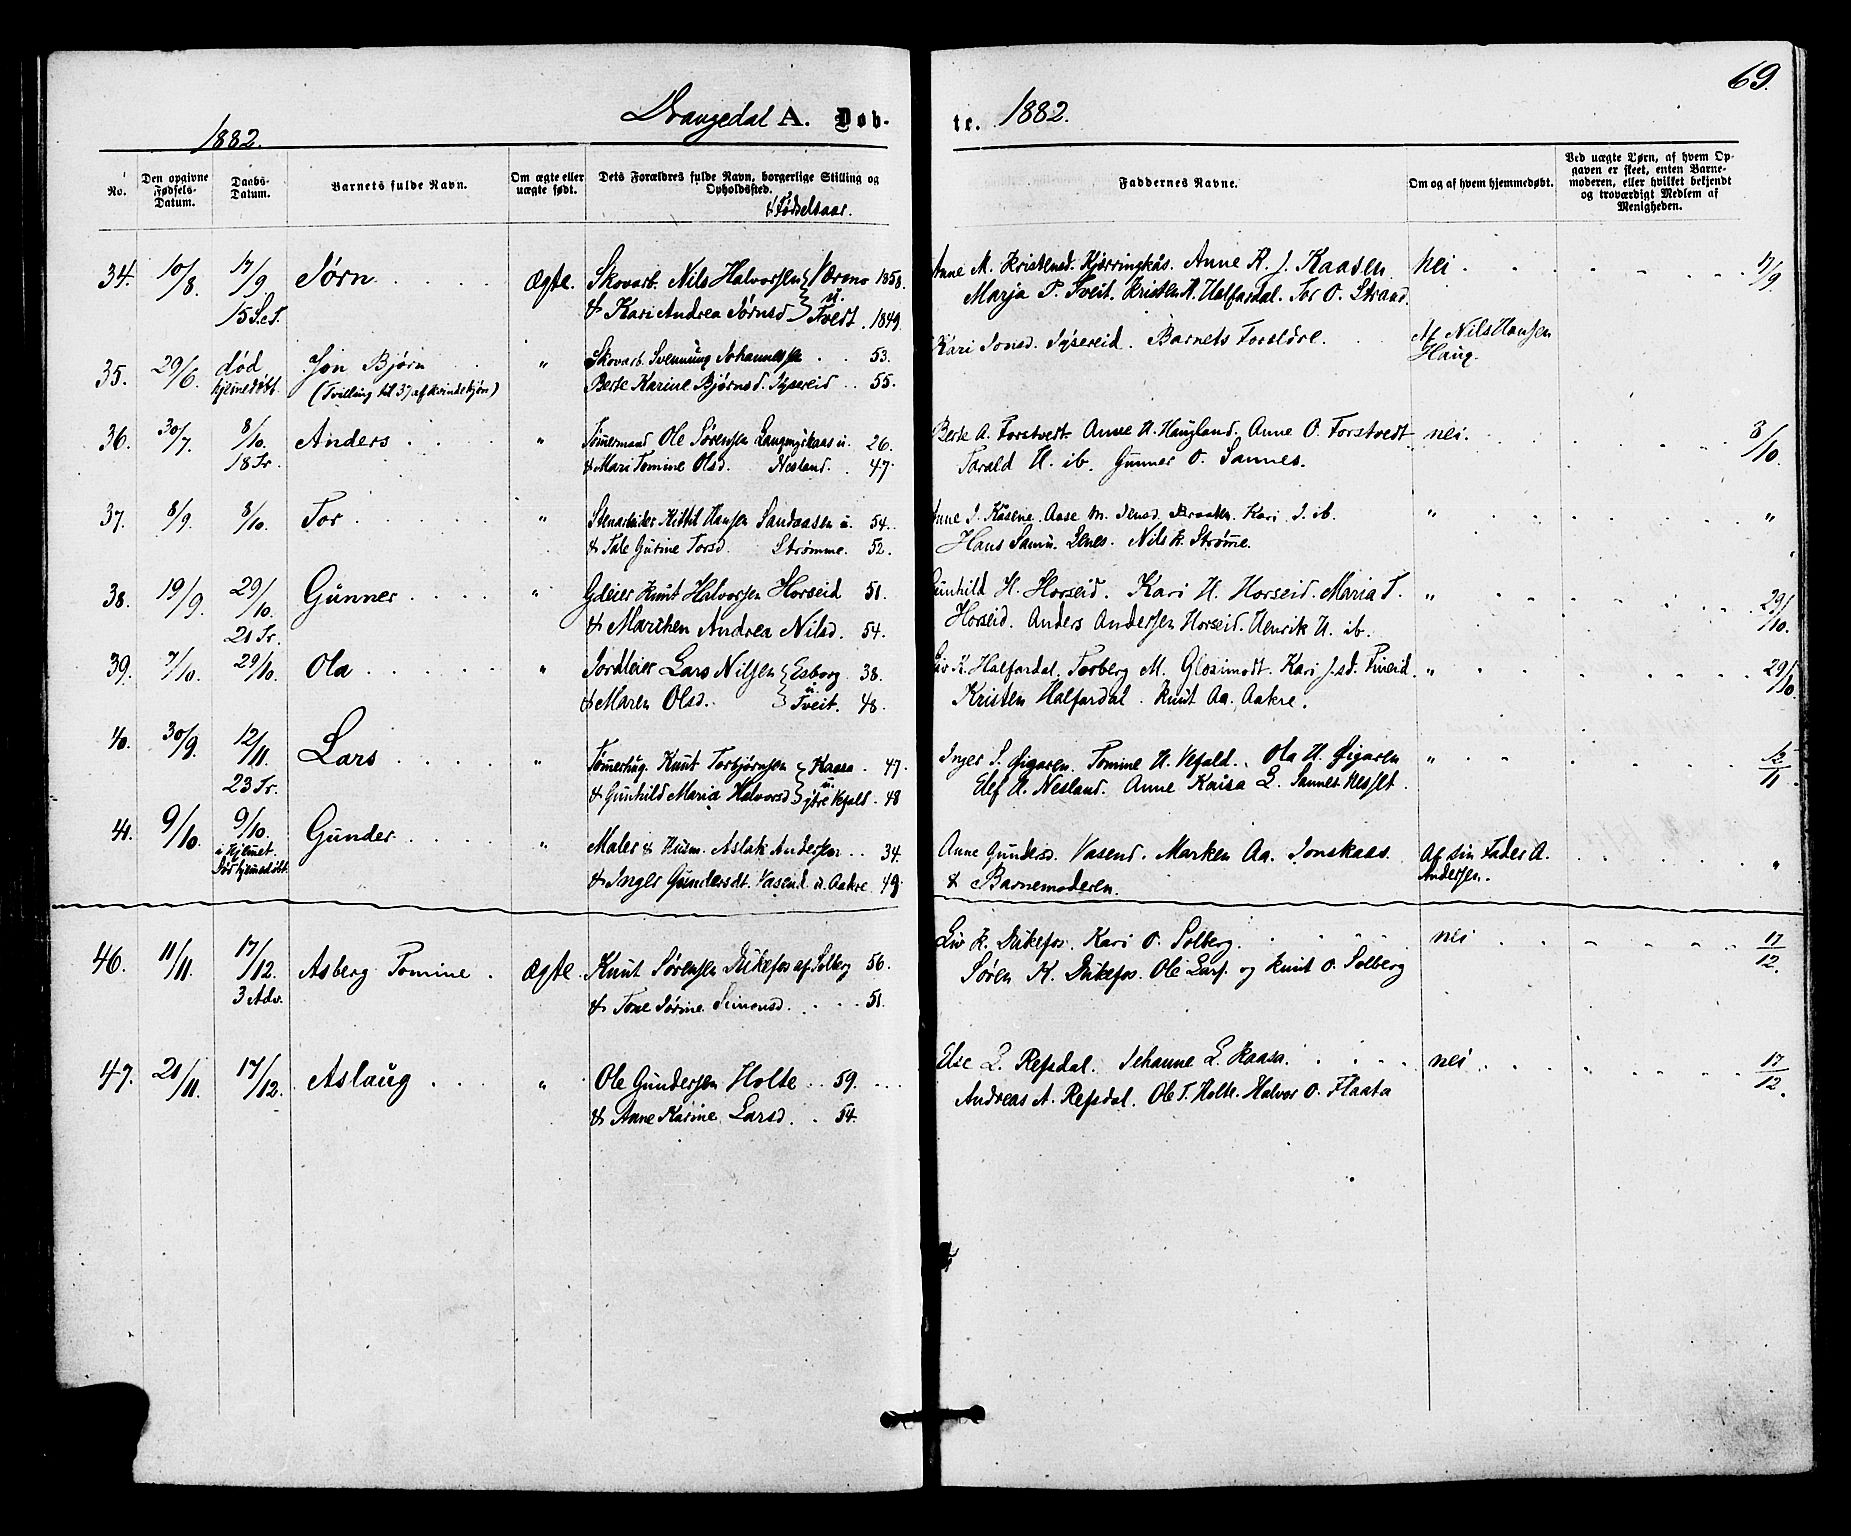 69.
Drangedal A. Døb-
te. 1882.
1882.
No.
Den opgivne Fødsels-Datum.
Daabs-Datum.
Barnets fulde Navn.
Om ægte eller uægte født.
Dets Forældres fulde Navn, borgerlige Stilling og Opholdssted.
& Fødselsaar.
Faddernes Navne.
Om og af hvem hjemmedøbt.
Ved uægte Børn, af hvem Opgaven er skeet, enten Barnemoderen, eller hvilket bekjendt og troværdigt Medlem af Menigheden.
34. 10/8. 17/9 Jørn Ægte Skovarb. Nils Halvorsen 1858. Anne M. Kristensd. Kjørringkås. Anne K. J. Kaasen nei 17/9
15 S.e.T. & Kari Andrea Jørnsd u. Tvedt. 1849. Marja P. Sveit. Kristen H. Halfardal. Tor O. Strand.
35. 29/6. død Jon Bjørn " Skovarb. Svennung Johannessen 53. Kari Jonsd. Sysereid. Barnets Forældre. Af Nils Hansen
hjemedøbt. (Tvilling til 37 af Kvindekjøn) Berte Karine Bjørnsd. Sysereid 55. Haug.
36. 30/7. 8/10. Anders " Tømermand Ole Sørensen Langmyrkaas u. 26. Berte A. Forstvedt. Anne H. Haugland. Anne O. Forstvedt nei. 8/10.
18 Tr. & Mari Tomine Olsd. Nesland. 47. Tarald H. ib. Gunner O. Sannes.
37. 8/9. 8/10. Tor " Stenarbeider Kittil Hansen Sandaasen u. 54. Anne J. Kåsene. Aase M. Jensd. Braaten. Kari J. ib. " "
& Tale Gurine Torsd. Strømme. 52. Hans Samu. Lenes. Nils K. Strøme.
38. 19/9. 29/10. Gunner " Gdeier Knut Halvorsen Horseid 51. Gunhild H. Horseid. Kari H. Horseid. Maria T. " 29/10.
21 Tr. & Marthen Andrea Nilsd. 54. Horseid. Anders Andersen Horseid. Henrik H. ib.
39. 7/10. 29/10. Ola " Jordleier Lars Nilsen Esborg 38. Liv K. Halfardal. Torberg M. Glosimodt. Kari J.sd. " 29/10.
& Maren Olsd. u. Tveit. 48. Kristen Halfardal. Knut Aa. Aakre.
40. 30/9. 12/11. Lars " Tømerhug. Knut Torbjørnsen Kaasa 47. Inger S. Øigaren. Tomine H. Vefald. Ola H. Øigaren " 12/11
23 Tr. & Gunhild Maria Halvorsd u. ytre Vefald. 48 Elef H. Nesland. Anne Kaisa L.
41. 9/10. 9/10. Gunder " Maler & Husm. Aslak Andersen 34. Anne Gundersd. Vasend. Marken Aa. Jonskaas. Af sin Fader A. "
i Hjemet. & Inger Gundersdt. Vasend u. Aakre 49. & Barnemoderen. Andersen.
Dør hjemedøbt
46. 11/11. 17/12. Asberg Tomine Ægte Knut Sørensen Dukefos af Solberg 56. Liv K. Dukefos. Kari O. Solberg. nei 17/12.
3 Adv. & Tone Jørine Simonsd. 51. Søren K. Dukefos. Ole Lars. og Knut O. Solberg
47. 21/11. 17/12. Aslaug " Ole Gundersen Holte 59. Else L. Refsdal. Johanne L. Kaasa. nei 17/12.
& Anne Karine Larsd. 54. Andreas A. Refsdal. Ole T. Holte. Halvor O. Flaata